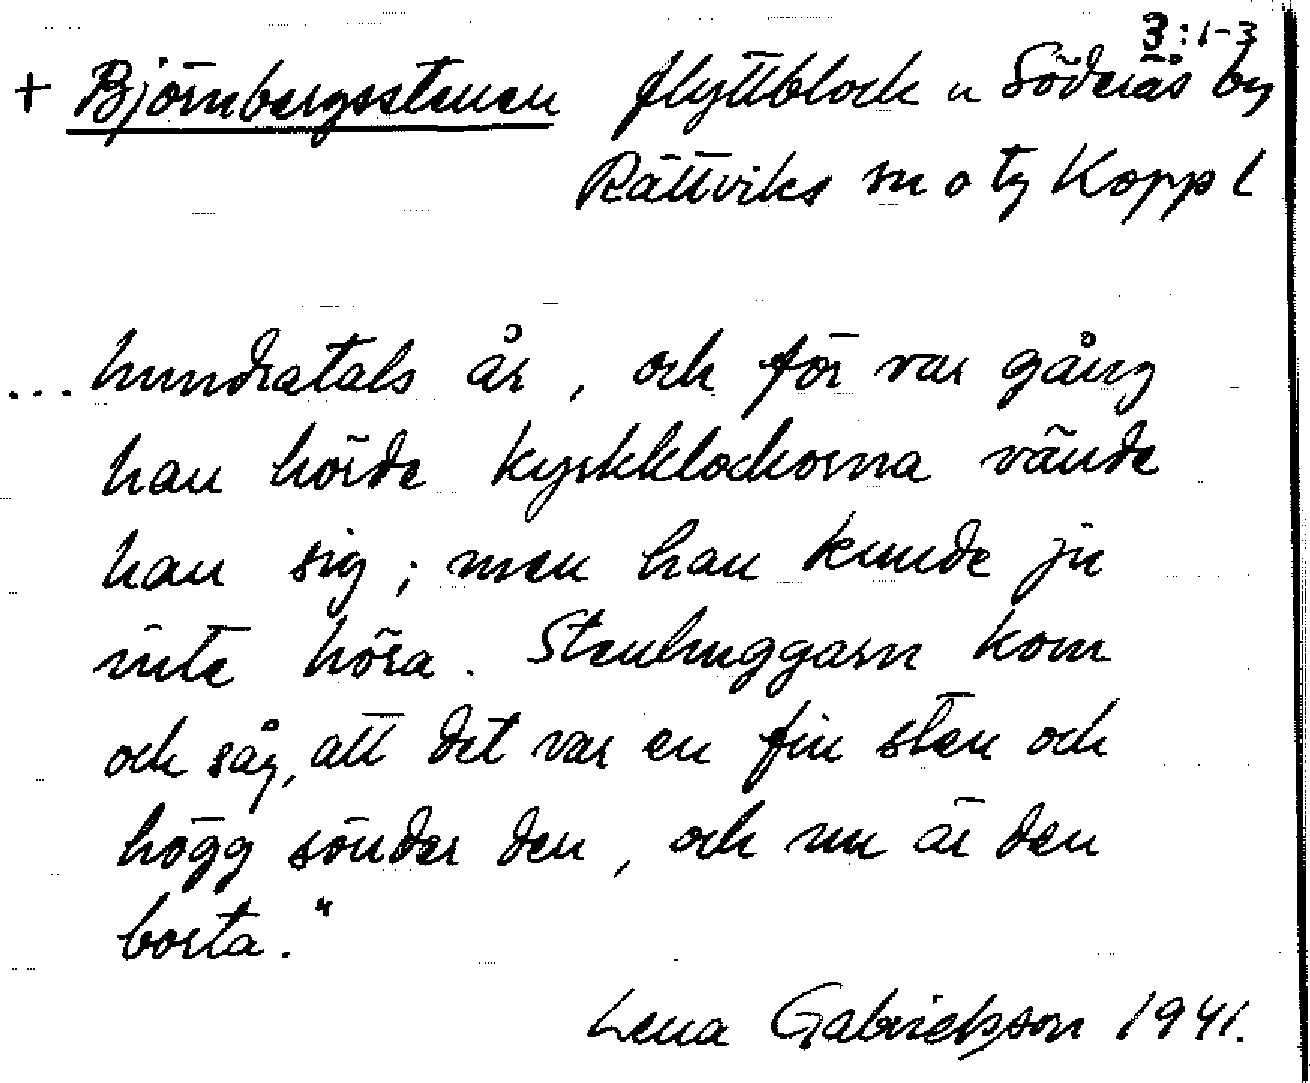 3:1-3
+ Björnbergsstenen flyttblock u Söderås by
Rättviks sn o tg Kopp l
... hundratals år, och för var gång
han hörde kyrkklockorna vände
han sig; men han kunde ju
inte höra. Stenhuggarn kom
och såg, att det var en fin sten och
högg sönder den, och nu är den
borta."
Lena Gabrielsson 1941.